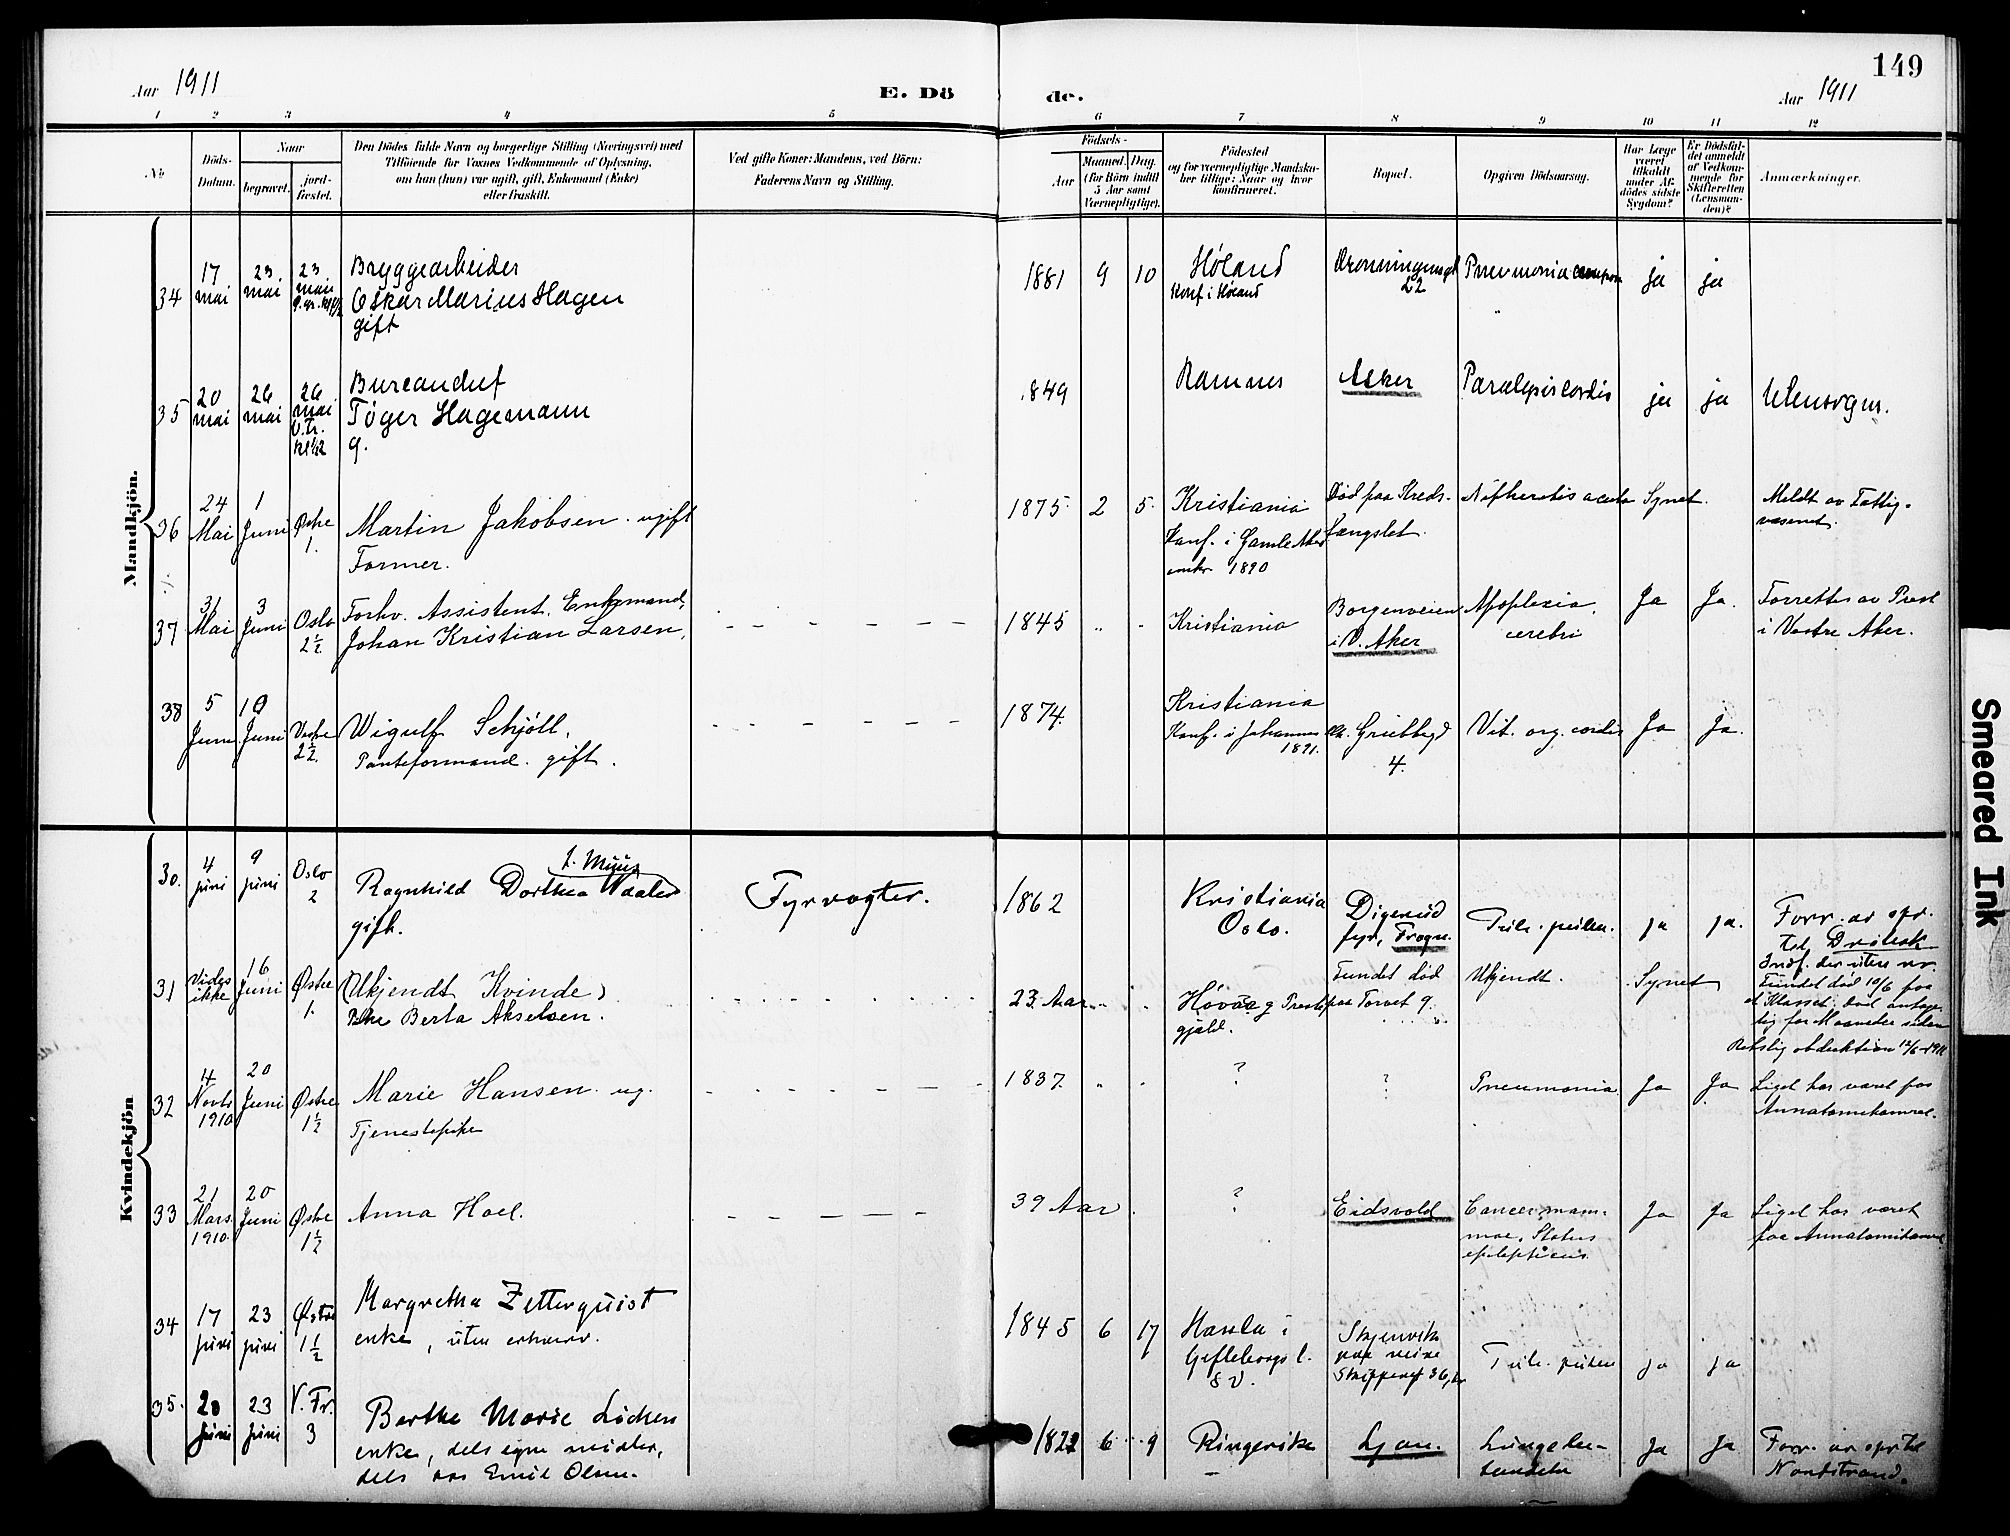 149
Aar 1911
E. Dö
de.
Aar 1911
1 2 3 4 5 6 7 8 9 10 11 12
No
Döds-
Datum.
Naar
begravet.
jord-
fæstet.
Den Dödes fulde Navn og borgerlige Stilling (Næringsvei) med
Tilföiende for Voxnes Vedkommende af Oplysning,
om han (hun) var ugift, gift, Enkemand (Enke)
eller fraskilt.
Ved gifte Koner: Mandens, ved Börn:
Faderens Navn og Stilling.
Födsels-
Aar
Maaned. Dag.
(for Börn indtil
5 Aar samt
Værnepligtige).
Födested
og for værnepligtige Mandska-
ber tillige: Naar og hvor
konfirmeret.
Bopæl.
Opgiven Dödsaarsag.
Har Læge
været
tilkaldt
under Af-
dödes sidste
Sygdom?
Er Dödsfal-
det anmeldt
af Vedkom-
mende for
Skifteretten
(Lensman-
den)?
Anmærkninger.
Mandkjön.
34
17
mai
23
mai
23
mai
Bryggearbeider
Oskar Marius Hagen
gift
1881 9 10
Høland
Konf i Høland
22
Pneumonia
ja ja
35
20
mai
26
mai
26
mai
Tøger Hagemann
g.
849
Ramnes
Asker
Paralysis cordis
ja ja
36
24
Mai
1
Juni
Østre
1.
Martin Jakobsen. ugift
Former.
1875. 2 5.
Kristiania
Konf. i Gamle Aker
1890
Død paa Kreds-
fængslet.
Synet
Meldt av Fattig-
væsenet.
37
31
Mai
3
Juni
Oslo
2½
Forhv. Assistent. Enkemand,
Johan Kristian Larsen,
1845
Kristiania
Borgenveien
i V. Aker
Apoplexia
cerebri
Ja Ja.
Forrettet av Prest
i Vestre Aker.
38
5
Juni
10
Juni
Vestre
2½
Wigulf Schjøll,
Panteformand. gift.
1874.
Kristiania
Konf. i Johannes
1891.
4.
Vit. org. cordis
Ja Ja.
Kvindekjön
30.
4
juni
9
juni
Oslo
2
Ragnhild Dorthea Vaaler
gift.
Fyrvogter.
1862
Kristiania
Oslo.
Digerud
fyr, Frogn.
ja ja.
Forr. av spr.
til Drøbak
31
Vides
ikke
16
Juni
Østre
1.
(Ukjendt Kvinde)
Berta Akselsen.
23 Aar
Høvaag Preste-
gjæld.
Fundet død
paa Torvet 9.
Ukjendt.
Synet
Fundet død 10/6 paa
et Klosset. Død antage-
lig for Maaneder siden
Retslig obduktion 12/6-1911
32
4
Novbr
1910
20
Juni
Østre
1½
Marie Hansen. ug.
Tjenestepike
1837.
?
?
Pneumonia.
Ja Ja
Liget har været paa
Annatomikamret.
33
21
Mars.
1910.
20
Juni
Østre
1½
Anna Hoel.
39 Aar
?
Eidsvold
Cancer mam-
mae. Status
epilepticus
Ja Ja
Liget har været
paa Annatomikamret
34
17
juni
23
juni
Østre
1½
Margretha Zetterquist
enke, uten erhverv.
1845 6 17
Gefleborgs l.
Skippergt 36,
ja ja
35.
20
juni
23
juni
V. Fr.
3
Berthe Marie Løchen
enke, dels egne midler,
dels hos Emil Olsen.
6 9
Ringerike
Ljan.
Lungebe-
tændelse
Ja Ja
Forr. av spr til
Nordstrand.
Smeared Ink